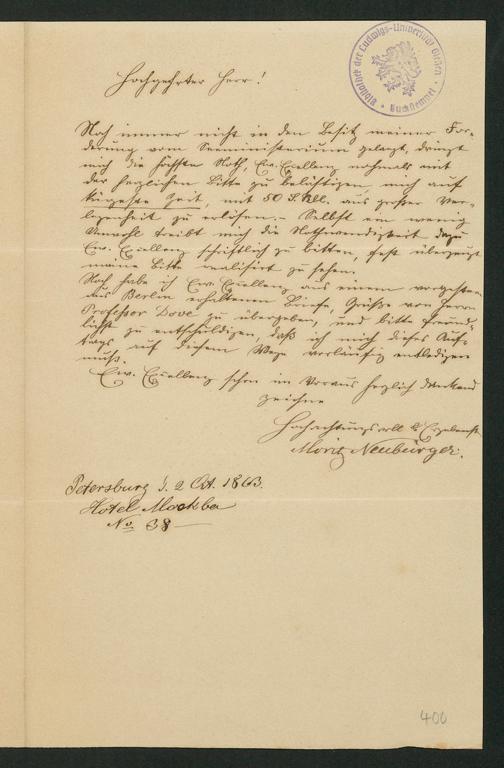 Bibliothek der Ludwigs-Universität Gießen
Buchstempel
Hochgeehrter Herr!
Noch immer nicht in den Besitz meiner For-
derung vom Seeministerium gelangt, dringt
mich die höchste Noth, Ew. Excellenz nochmals mit
der herzlichen Bitte zu belästigen, mich auf
kürzeste Zeit, mit 50 S. Rbl. aus großer Ver-
legenheit zu erlösen. – Selbst ein wenig
Unwohl treibt mich die Nothwendigkeit dazu
Ew. Excellenz schriftlich zu bitten, fest überzeugt
meine Bitte realisirt zu sehen.
Noch habe ich Ew. Excellenz aus einem vorgestern
aus Berlin erhaltenen Briefe, Grüße von Herrn
Professor Dove zu übergeben, und bitte freund-
lichst zu entschuldigen, daß ich mich dieses Auf-
trags auf diesem Wege vorläufig entledigen
muß.
Ew. Excellenz schon im Voraus herzlich dankend
zeichne
Hochachtungsvoll & Ergebenst
Moritz Neubürger.
Petersburg d. 2 Oct. 1863.
Hôtel Mockba
No 38
400